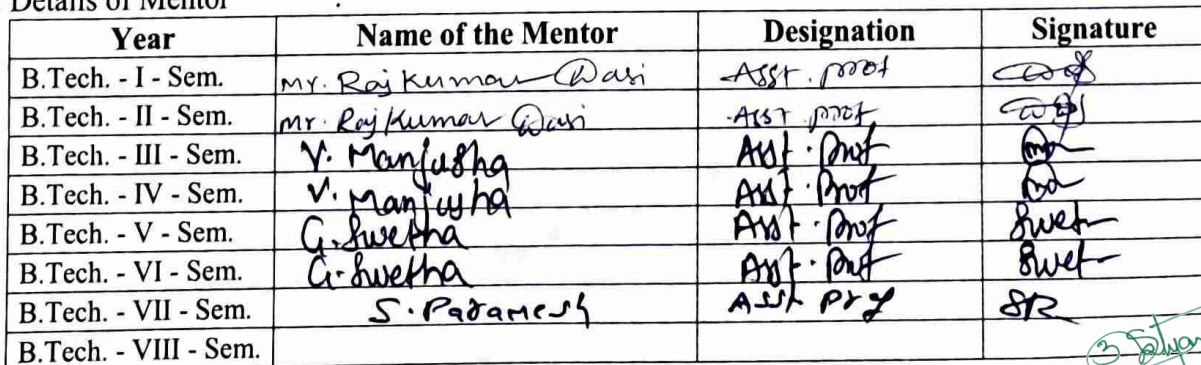 Details of Mentor :
Year Name of the Mentor Designation Signature
B.Tech. - I - Sem. Mr. Raj Kumar Dasi Asst. prof
B.Tech. - II - Sem. Mr. Raj Kumar Dasi Asst prof
B.Tech. - III - Sem. V. Manjusha Asst. Prof
B.Tech. - IV - Sem. V. Manjusha Asst. Prof
B.Tech. - V - Sem. G. Swetha Asst. Prof Swet
B.Tech. - VI - Sem. G. Swetha Asst. Prof Swet
B.Tech. - VII - Sem. S. Paramesh Asst Prof SR
B.Tech. - VIII - Sem.